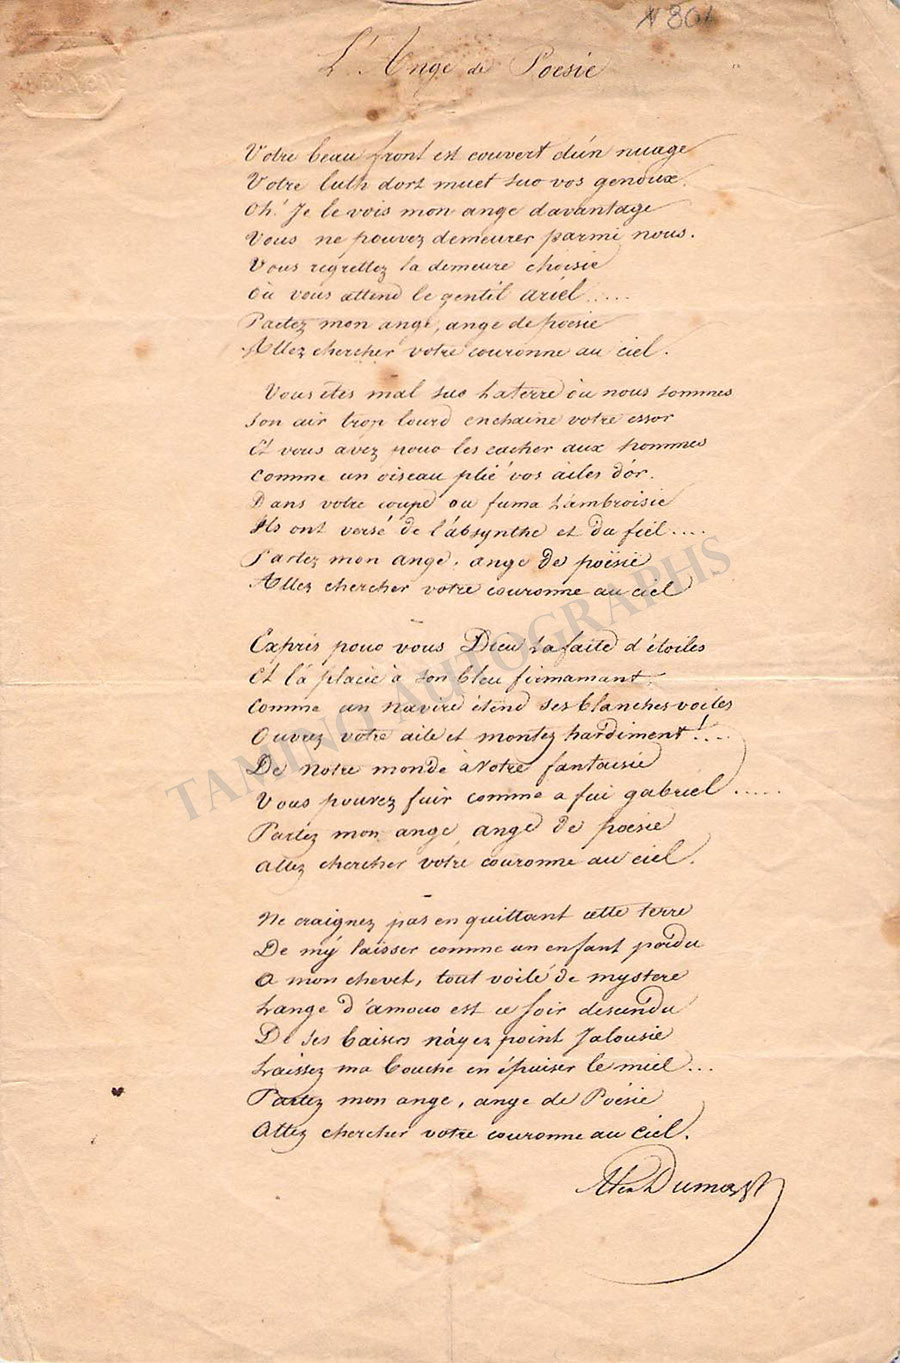 N 801
L'Ange de Poesie
Votre beau front est couvert d'un nuage
Votre luth dort muet sur vos genoux.
Oh! Je le vois mon ange davantage
Vous ne pouvez demeurer parmi nous.
Vous regrettez la demeure choisie
Où vous attend le gentil ariel.....
Partez mon ange, ange de poesie
Allez chercher votre couronne au ciel.
Vous êtes mal sur La terre où nous sommes
Son air trop lourd enchaine votre essor
Et vous avez pour les cacher aux hommes
Comme un oiseau plié vos ailes d'or.
Dans votre coupe ou fuma L'ambroisie
Ils ont versé de l'absynthe et du fiel....
Partez mon ange, ange de poësie
Allez chercher votre couronne au ciel
Exprès pour vous Dieu La faite d'étoiles
Et l'a placée à son bleu firmamant.
Comme un navire étend ses blanches voiles
Ouvrez votre aile et montez hardiment!...
De notre monde à Votre fantaisie
Vous pouvez fuir comme a fui gabriel.....
Partez mon ange ange de poesie
Allez chercher votre couronne au ciel.
Ne craignez pas en quittant cette terre
De m'y laisser comme un enfant perdu
A mon chevet, tout voilé de mystere
L'ange d'amour est ce soir descendu
De ses baisers n'ayez point Jalousie
Laissez ma bouche en épuiser le miel...
Partez mon ange, ange de Poésie
Allez chercher votre couronne au ciel.
Alex Dumas
TAMINO AUTOGRAPHS